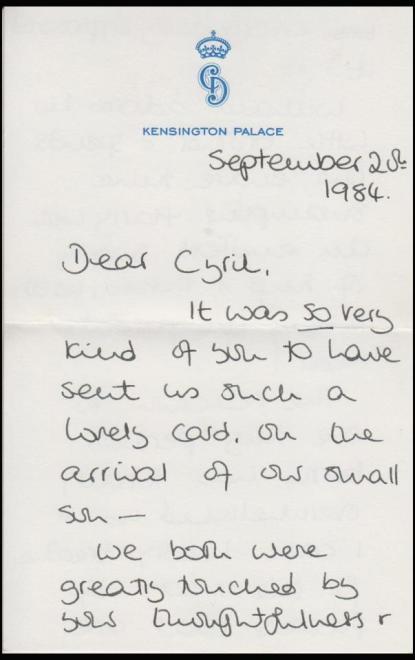 KENSINGTON PALACE
September 20th
1984.
Dear Cyril,
It was so very
kind of you to have
sent us such a
lovely card, on the
arrival of our small
son.
We both were
greatly touched by
your thoughtfulness &